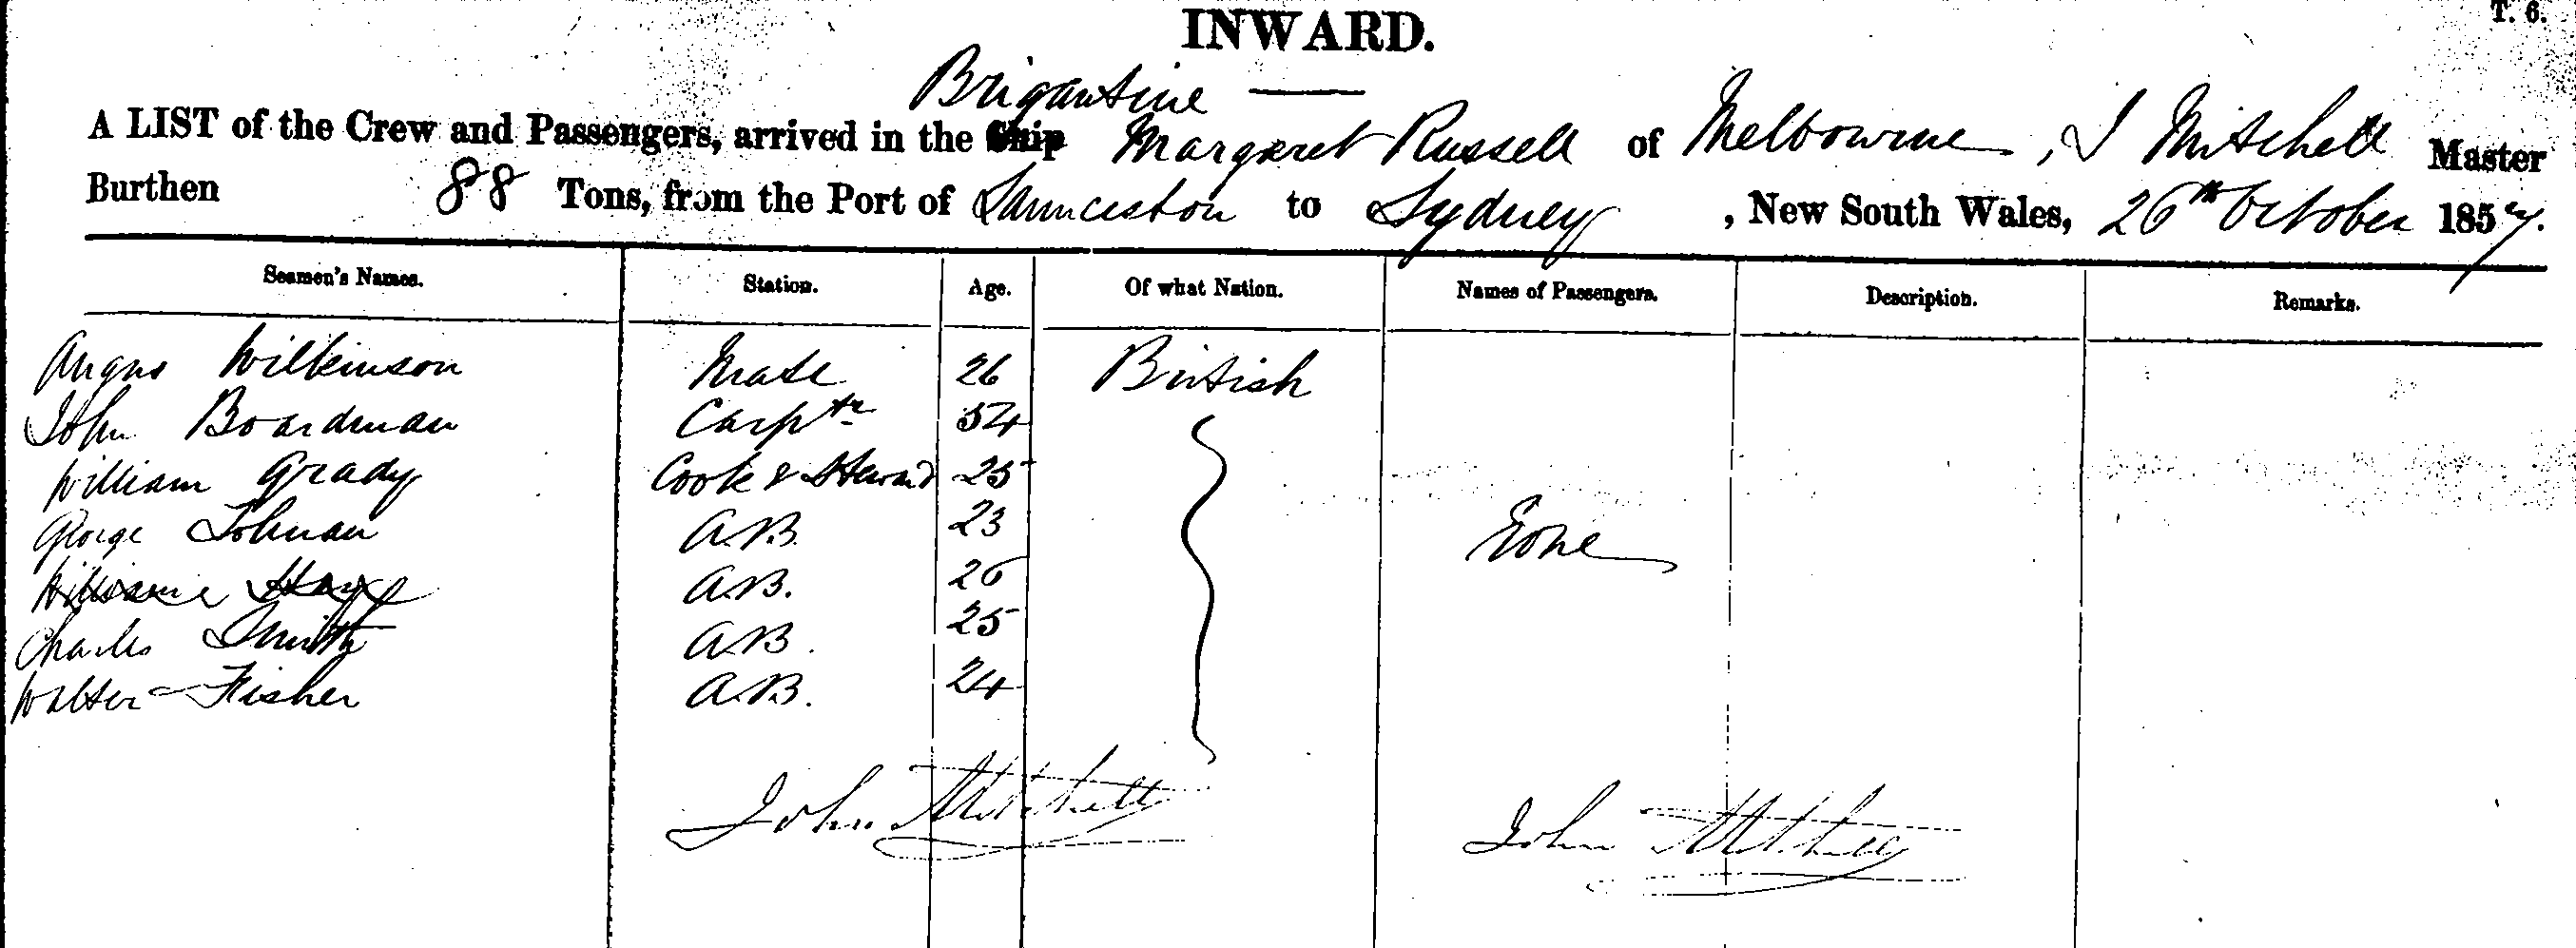 T. 6.
INWARD.
Brigantine
A LIST of the Crew and Passengers, arrived in the Ship Margaret Russell of Melbourne, J Mitchell Master
Burthen 88 Tons, from the Port of Launceston to Sydney, New South Wales, 26th October 1857.
Seamen's Names. Station. Age. Of what Nation. Names of Passengers. Description. Remarks.
Angus Wilkinson Mate 26 British
John Boardman Carptr 54
William Grady Cook & Steward 25
George Tolman A.B. 23
A.B. 26
Charles Smith A.B. 25
Walter Fisher A.B. 24
John Mitchell John Mitchell